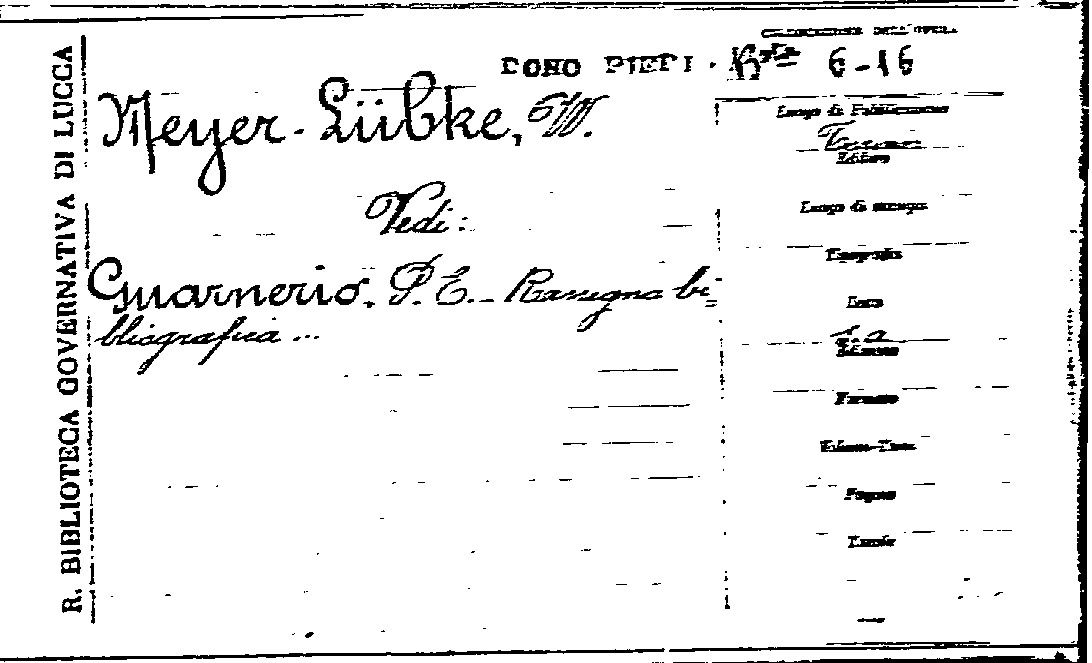 R. BIBLIOTECA GOVERNATIVA DI LUCCA
COLLOCAZIONE DELL'OPERA
DONO PIERI · Bta 6-16
Meyer-Lübke, W.
Vedi:
Guarnerio. P. E. - Rassegna bi=
bliografica ...
Luogo di Pubblicazione
Editore
Luogo di stampa
Tipografia
Data
s. a
Edizione
Formato
Volume-Tomo
Pagine
Tavole